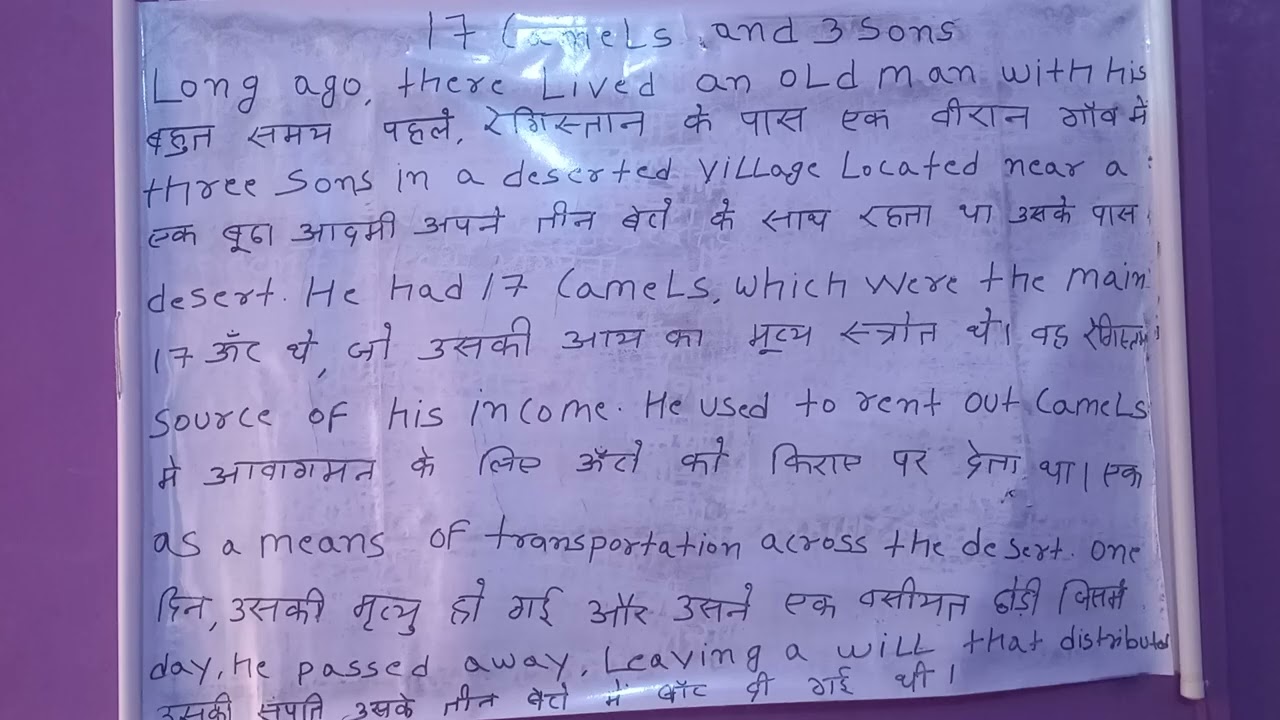 17 Camels and 3 Sons
Long ago, there Lived an old man with his
बहुत समय पहले, रेगिस्तान के पास एक वीरान गाँव में
three sons in a deserted village Located near a
एक बूढा आदमी अपने तीन बेटो के साथ रहता था उसके पास
desert. He had 17 Camels, which were the main
17 ऊँट थे, जो उसकी आय का मूख्य स्त्रोत थे। वह रेगिस्तान
source of his income. He used to rent out Camels
मे आवागमन के लिए ऊँटो को किराए पर देता था। एक
as a means of transportation across the desert. One
दिन, उसकी मृत्यु हो गई और उसने एक वसीयत छोडी जिसमें
day, he passed away, Leaving a will that distributed
उसकी संपति उसके तीन बेटो में बाँट दी गई थी।